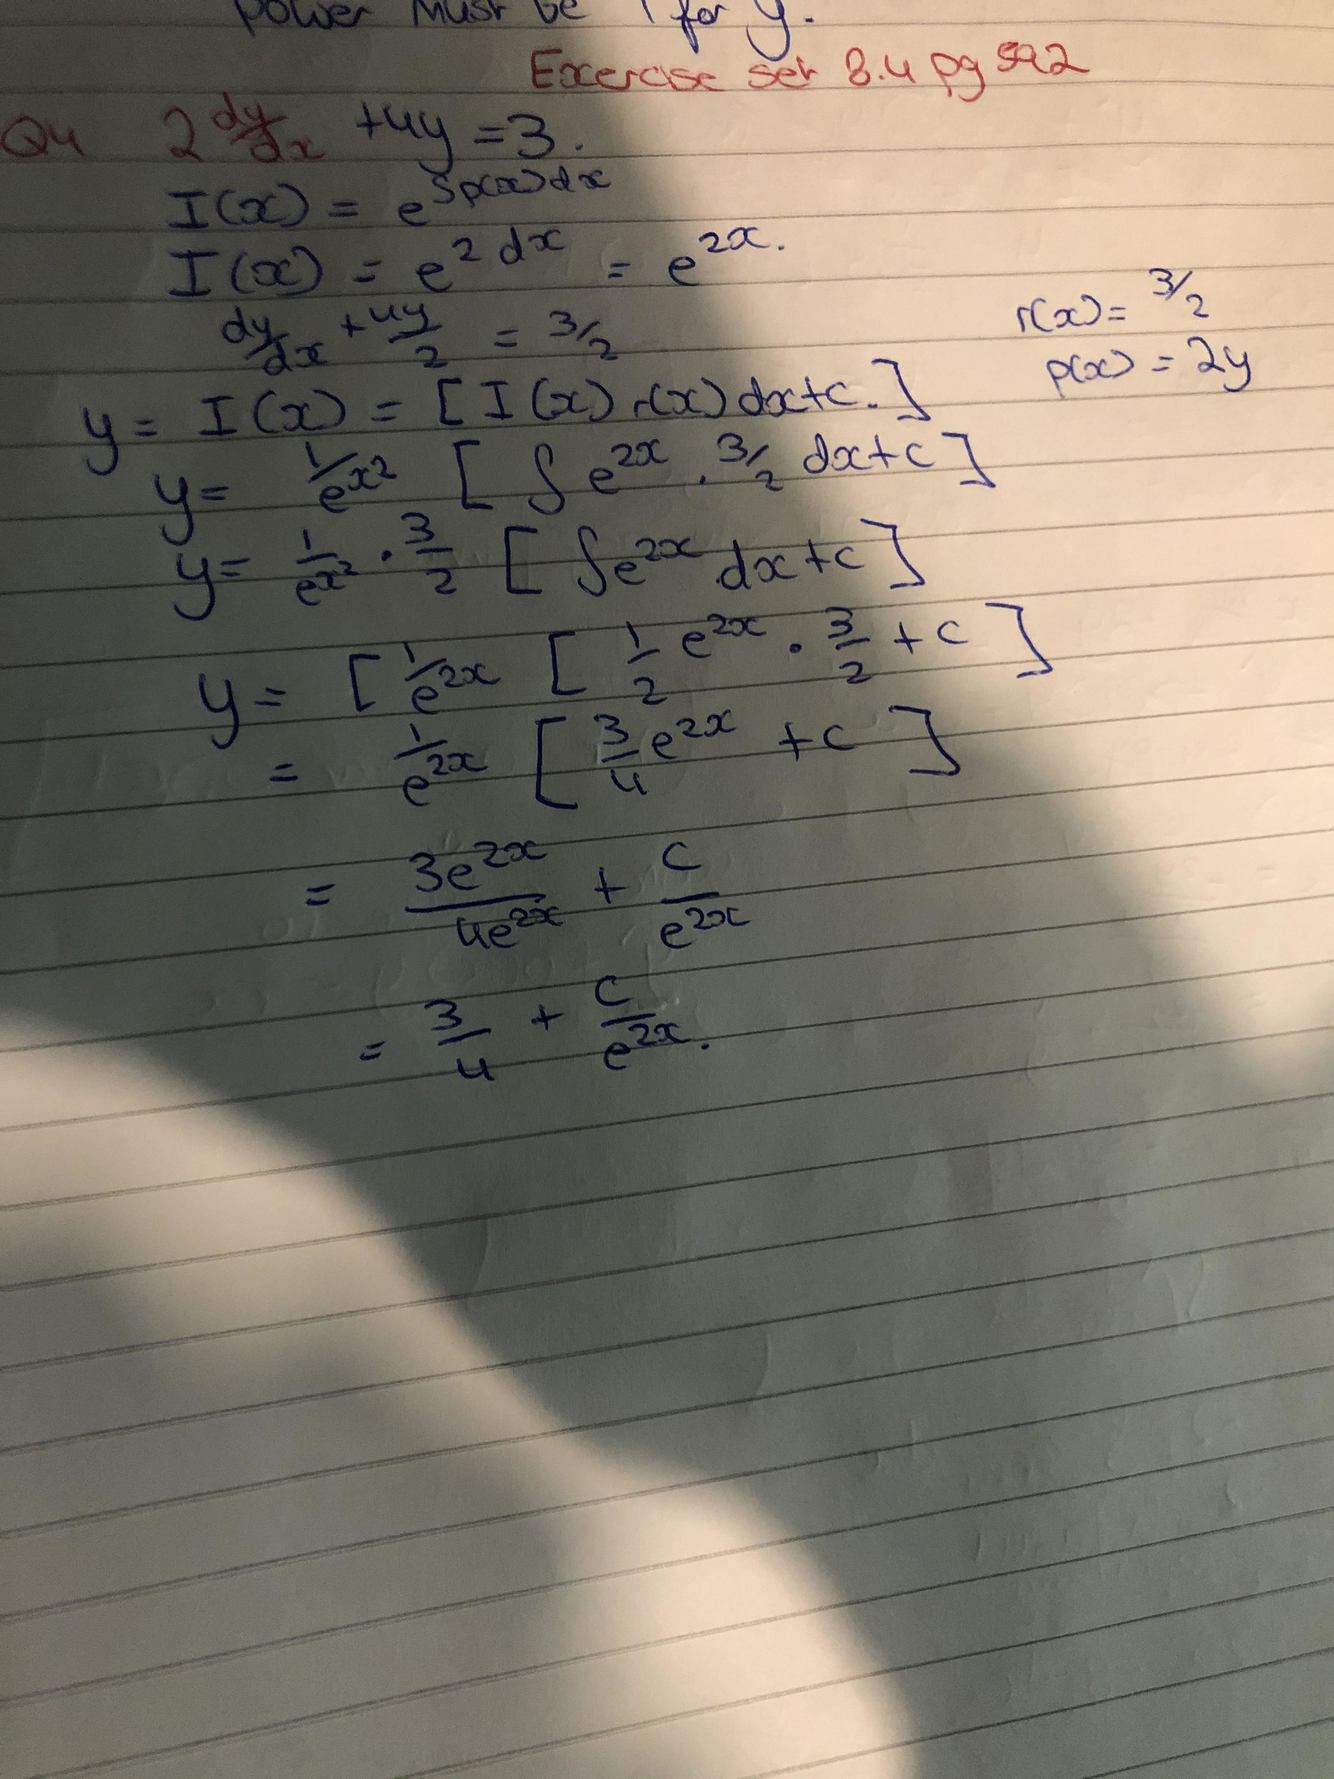 power must be 1 for y.
Exercise set 8.4 pg 592
Q4 2 dy/dx + 4y = 3.
I(x) = e^∫p(x)dx
I(x) = e^2 dx = e^2x.
dy/dx + 4y/2 = 3/2
r(x) = 3/2
p(x) = 2y
y = I(x) = [I(x) r(x) dx+c.]
y = 1/e^x2 [∫e^2x . 3/2 dx+c]
y = 1/e^x2 . 3/2 [∫e^2x dx+c]
y = [1/e^2x [1/2 e^2x . 3/2 + c]
= 1/e^2x [3/4 e^2x + c]
= 3e^2x/4e^2x + c/e^2x
= 3/4 + c/e^2x.